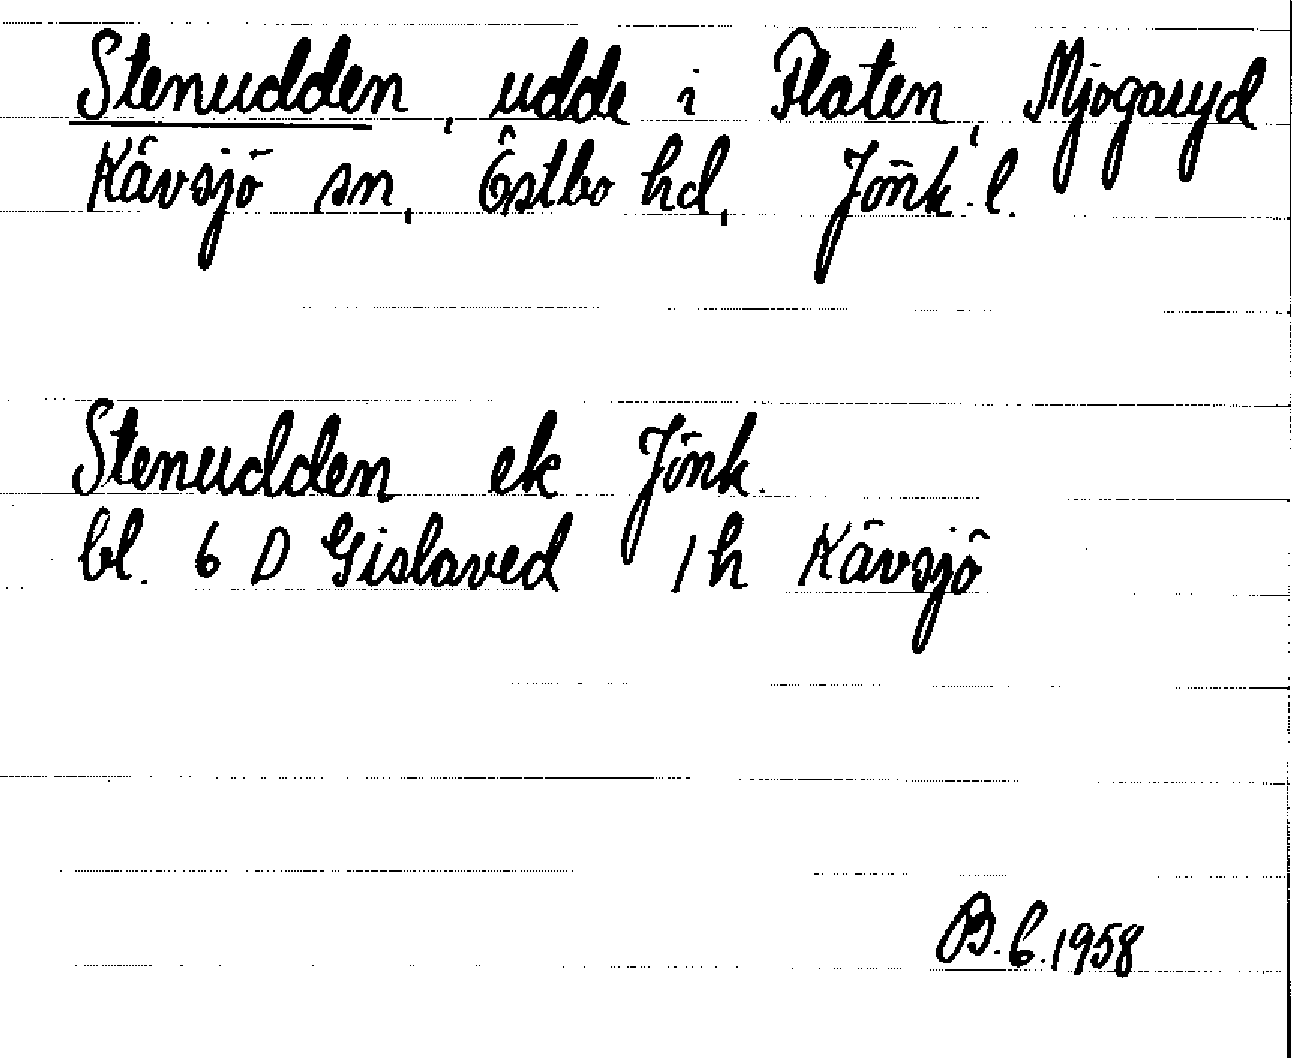 Stenudden, udde i Flaten, Mjogaryd
Kävsjö sn, Östbo hd, Jönk. l.
Stenudden ek Jönk.
bl. 6 D Gislaved 1 h Kävsjö
B.G.1958